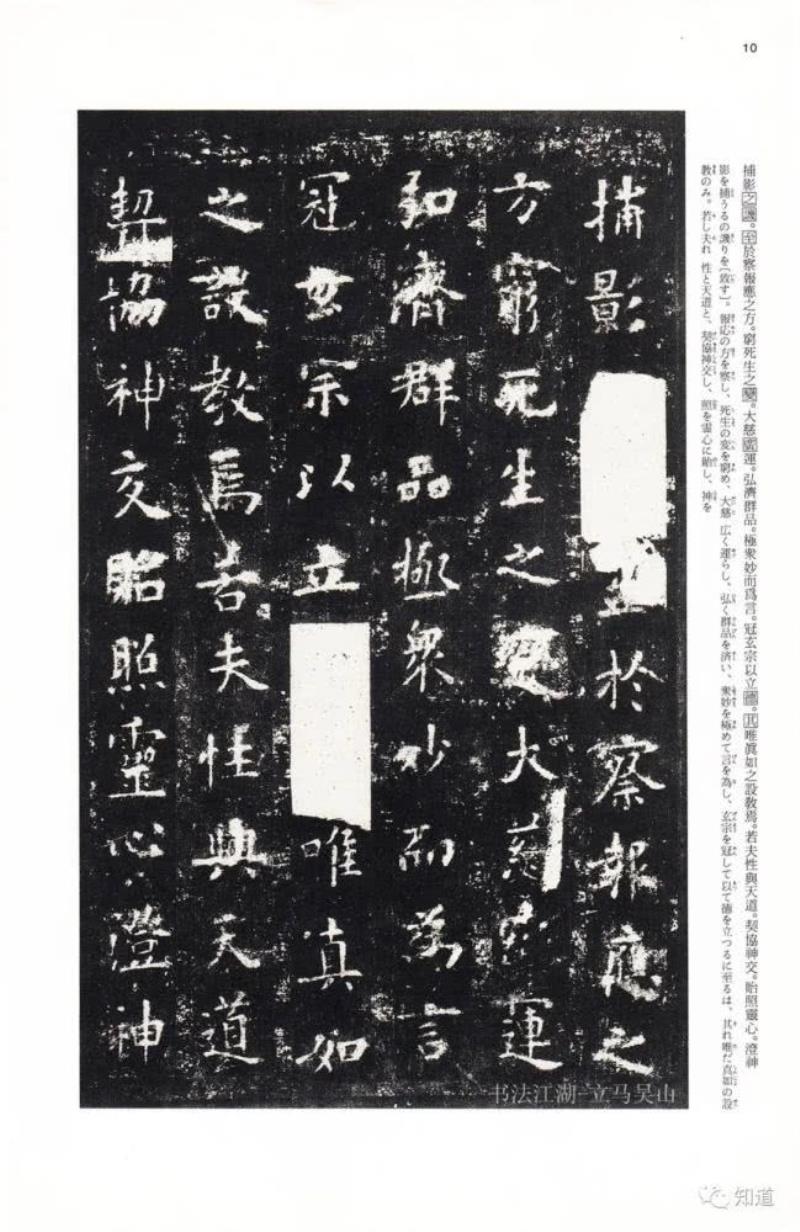 10
捕影之譏。至於察報應之方。窮死生之變。大慈廣運。弘濟群品。極衆妙而爲言。冠玄宗以立德。其唯眞如之設敎焉。若夫性與天道。契協神交。貽照靈心。澄神
影を捕うるの譏りを〔致す〕。報応の方を察し、死生の変を窮め、大慈 広く運らし、弘く群品を済い、衆妙を極めて言を為し、玄宗を冠して以て徳を立つるに至るは、其れ唯だ真如の設
教のみ。若し夫れ 性と天道と、契協神交し、照を霊心に貽し、神を
捕影 至於察報應之
方窮死生之變大慈廣運
弘濟群品極衆妙而為言
冠玄宗以立 唯真如
之設教焉若夫性與天道
契協神交貽照靈心澄神
书法江湖-立马吴山
知道